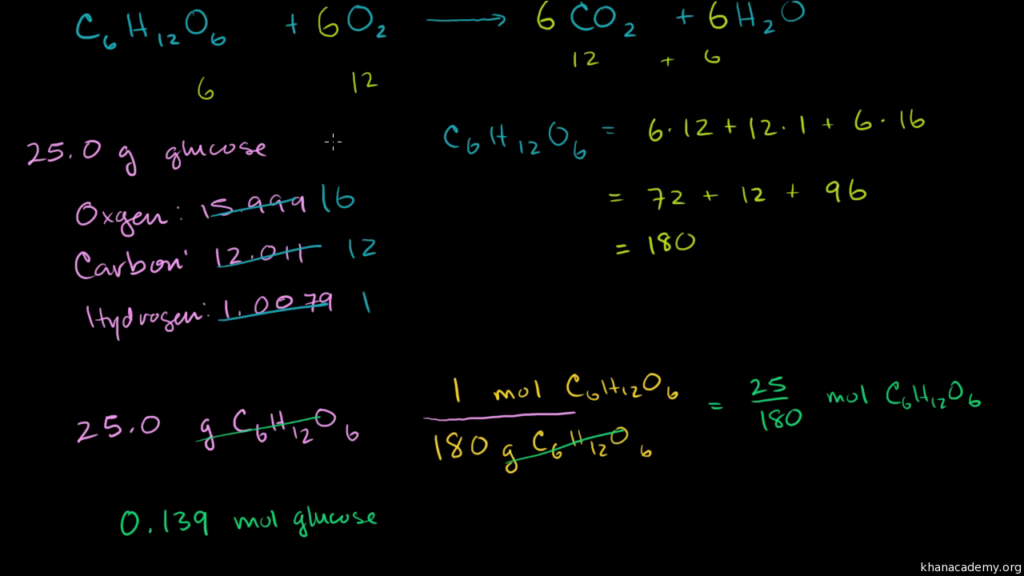 C₆H₁₂O₆ + 6O₂ → 6CO₂ + 6H₂O
6 12 12 + 6
25.0 g glucose
Oxgen: 15.999 16
Carbon: 12.011 12
Hydrogen: 1.0079 1
C₆H₁₂O₆ = 6·12 + 12·1 + 6·16
= 72 + 12 + 96
= 180
25.0 g C₆H₁₂O₆ 1 mol C₆H₁₂O₆ / 180 g C₆H₁₂O₆ = 25/180 mol C₆H₁₂O₆
0.139 mol glucose
khanacademy.org